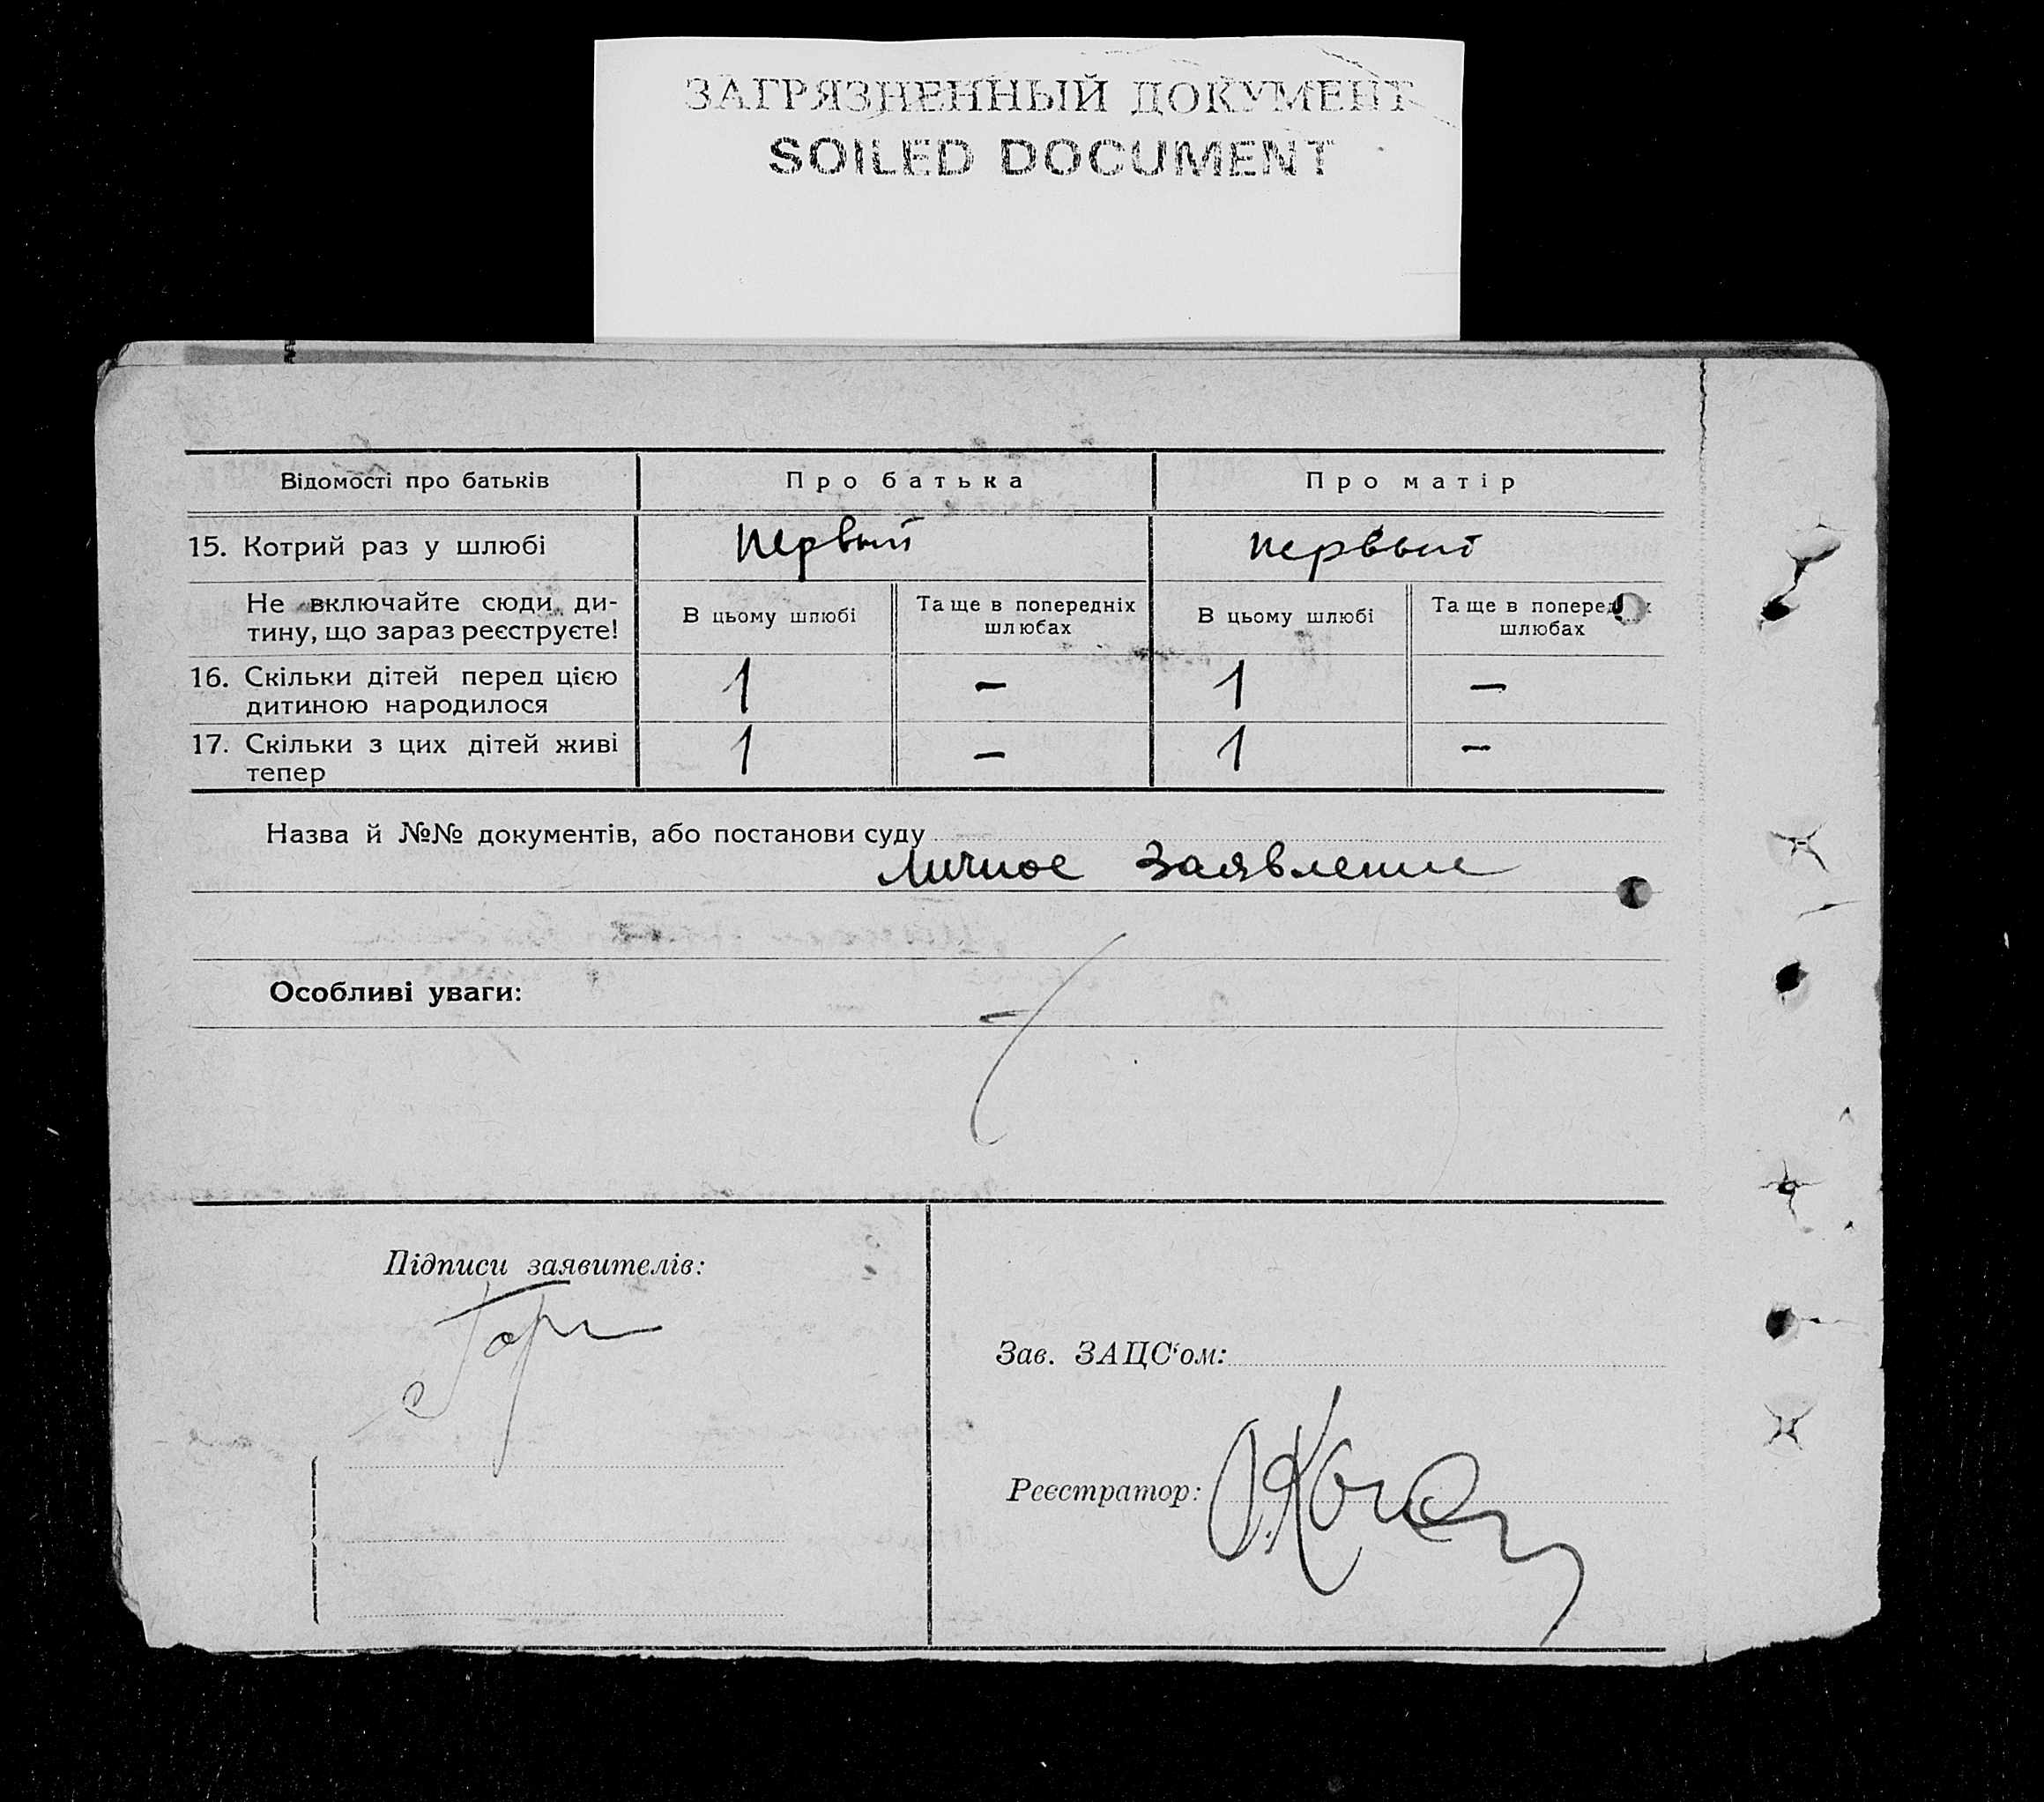 ЗАГРЯЗНЕННЫЙ ДОКУМЕНТ
SOILED DOCUMENT
Відомості про батьків
Про батька
Про матір
15. Котрий раз у шлюбі
первый
первый
Не включайте сюди ди-
тину, що зараз реєструєте!
В цьому шлюбі
Та ще в попередніх
шлюбах
В цьому шлюбі
Та ще в поперед
шлюбах
16. Скільки дітей перед цією
дитиною народилося
1
–
1
–
17. Скільки з цих дітей живі
тепер
1
–
1
–
Назва й №№ документів, або постанови суду
личное заявление
Особливі уваги:
Підписи заявителів:
Зав. ЗАЦС'ом:
Реєстратор: